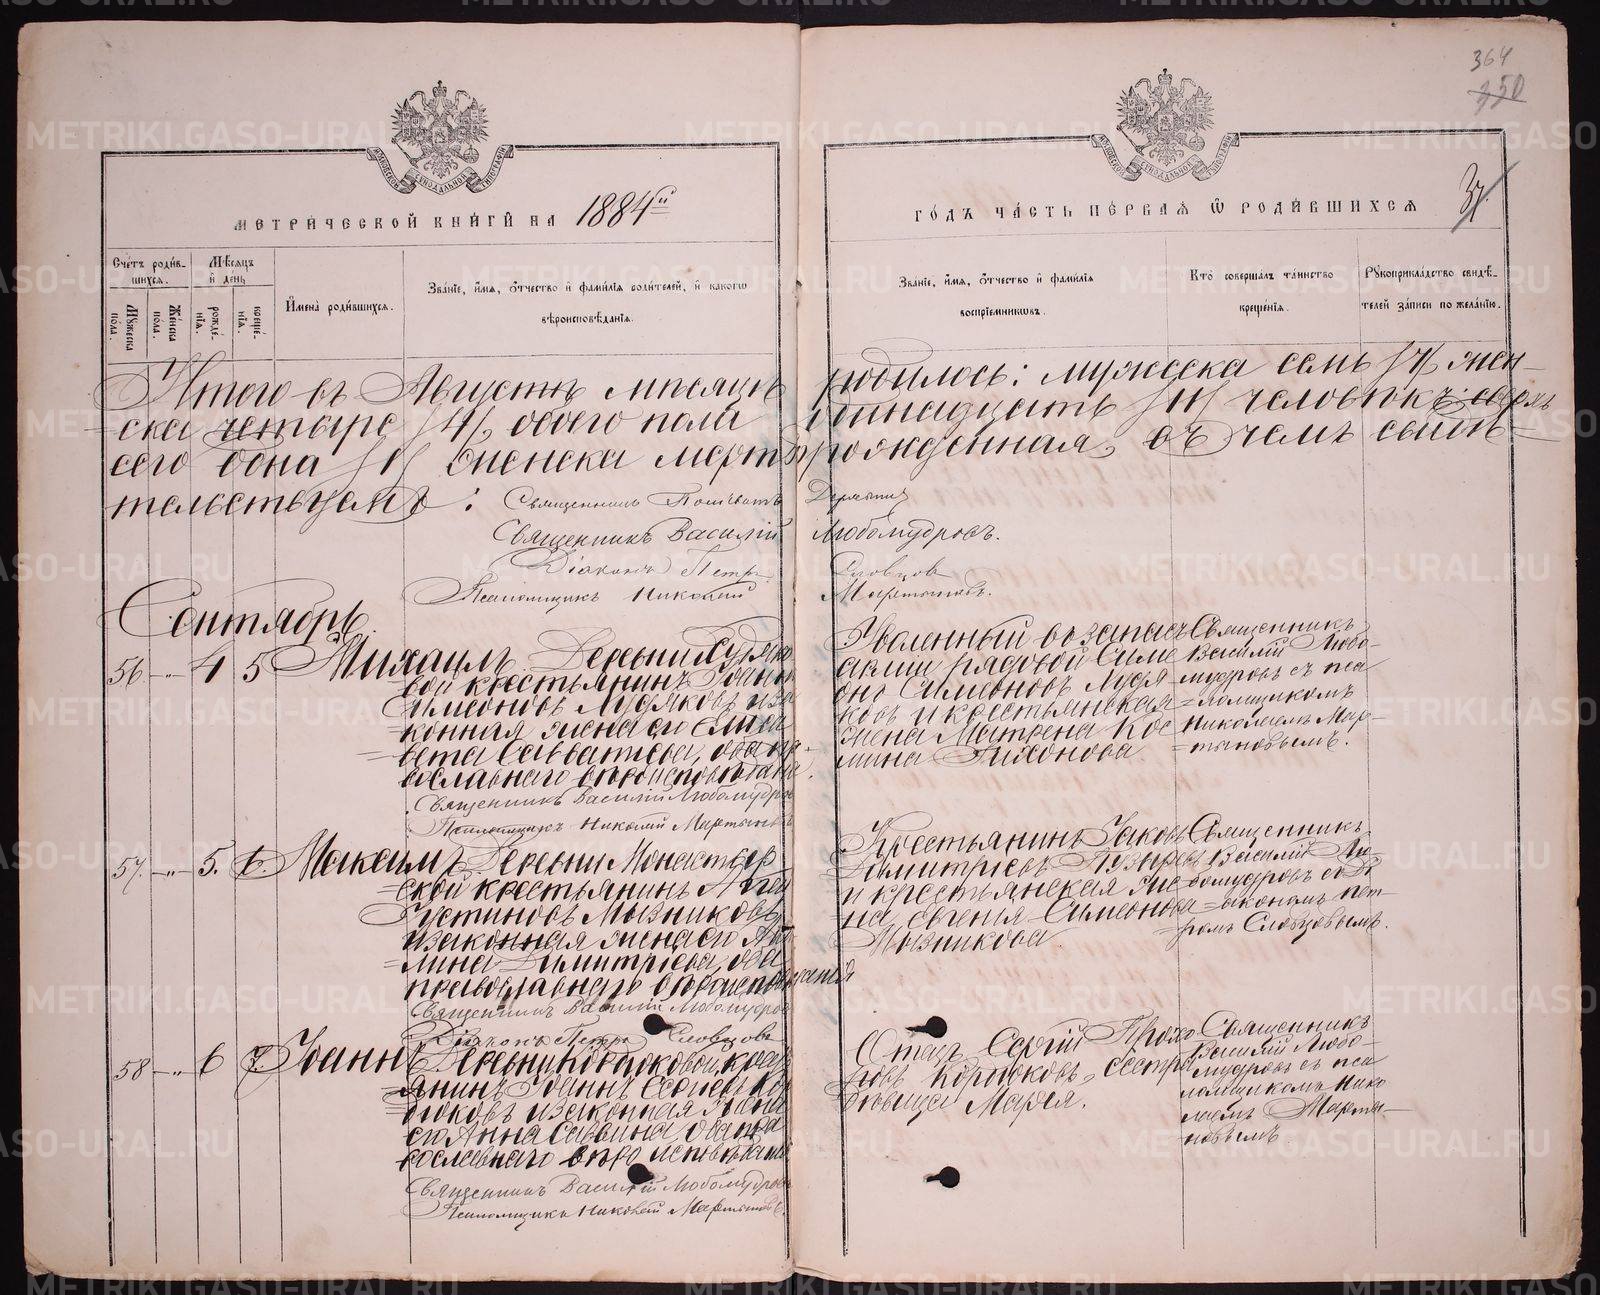 364
350
37.
МЕТРИ́ЧЕСКОЙ КНИ́ГИ НА 1884й
ГО́ДЪ ЧА́СТЬ ПЕ́РВАЯ Ѡ РОДИ́ВШИХСЯ
Сче́тъ роди́вшихся.
Му́жеска по́ла.
Же́нска по́ла.
Мѣ́сяцъ и де́нь
рожде́нія.
креще́нія.
И́мена роди́вшихся.
Зва́ніе, и́мя, о́тчество и фами́лія роди́телей, и како́гѡ
вѣроисповѣ́данія.
Зва́ніе, и́мя, о́тчество и фами́лія
воспріе́мниковъ.
Кто́ соверша́лъ та́инство
креще́нія.
Рꙋкоприкла́дство свидѣ́-
телей за́писи по жела́нію.
Итого въ Августѣ мѣсяцѣ родилось: мужеска семь /7/ жен-
ска четыре /4/ обоего пола одиннадцать /11/ человѣкъ: сверхъ
сего одна /1/ женска мертворожденная, въ чемъ свидѣ-
тельствуемъ:
Священникъ
Священникъ Василій Любомудровъ.
Діаконъ Петръ Словцовъ
Псаломщикъ Николай Мартыновъ.
Сентябрь.
56 " 4 5 Михаилъ
Деревни
вой крестьянинъ Іоаннъ
Симеоновъ и за-
конная жена его Елиса-
вета Савватіева, оба пра-
вославнаго вѣроисповѣданія.
Священникъ Василій Любомудровъ
Псаломщикъ Николай Мартыновъ
Уволенный въ запасъ
арміи рядовой Симе
онъ Симеоновъ
ковъ и крестьянская
жена Матрена Кос
мина Тихонова
Священникъ
Василій Любо-
мудровъ съ пса
=ломщикомъ
Николаемъ Мар-
=тыновымъ.
57. " 5. 6. Максимъ
Деревни Монастыр
=ской крестьянинъ
Густиновъ Мызниковъ
и законная жена его
=лина Димитріева, оба
православнаго вѣроисповѣданія
Священникъ Василій Любомудровъ
Діаконъ Петръ Словцовъ
Крестьянинъ Іаковъ
Димитріевъ Пузыревъ
и крестьянская же
=на Евгенья Симеонова
Мызникова.
Священникъ
Василій Лю-
бомудровъ съ Ді
=акономъ Пет-
ромъ Словцовымъ.
58 " 6 7. Іоаннъ
Деревни Коробковой, крест
янинъ Іоаннъ Сергіевъ Ко
робковъ и законная жена
его Анна Саввина, оба пра
вославнаго вѣроисповѣданія
Священникъ Василій Любомудровъ
Псаломщикъ Николай Мартыновъ.
Отецъ Сергій Прохо
ровъ Коробковъ, сестра
дѣвица Марія.
Священникъ
Василій Любо-
мудровъ съ пса
ломщикомъ Нико
лаемъ Марты-
новымъ.